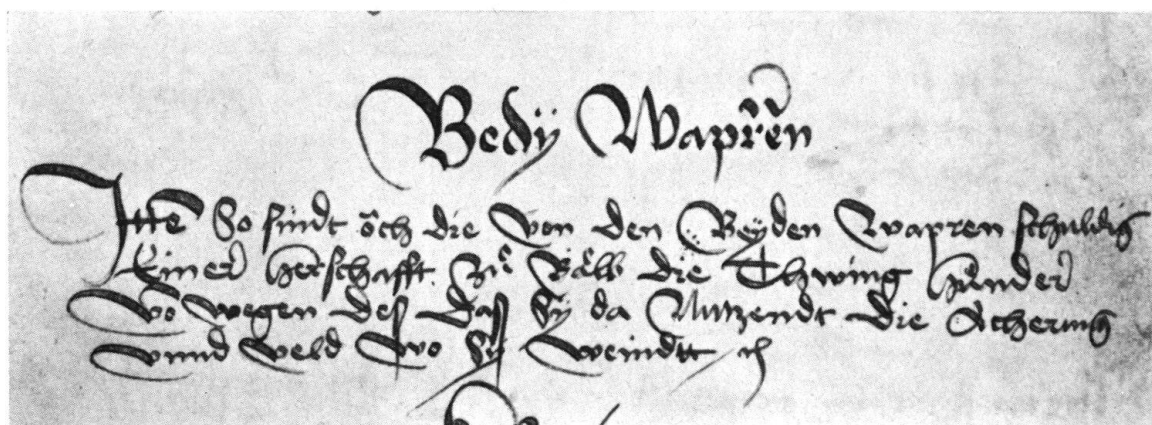 Bedÿ Wapren
Itte So sindt och die Von den Beÿden Wapren schuldig
Einer Herschafft Zů die Thwing hünder
Vo wegen deß daß Sÿ da Nutzendt die Acherung
vnnd veld wo Sÿ weindtt